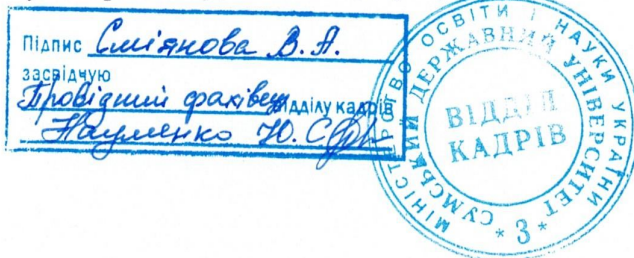 Підпис Смiянова В. А.
засвідчую
Провідний фахівець відділу кадрів
Науменко Ю. С.
МІНІСТЕРСТВО ОСВІТИ І НАУКИ УКРАЇНИ
СУМСЬКИЙ ДЕРЖАВНИЙ УНІВЕРСИТЕТ
ВІДДІЛ
КАДРІВ
* 3 *